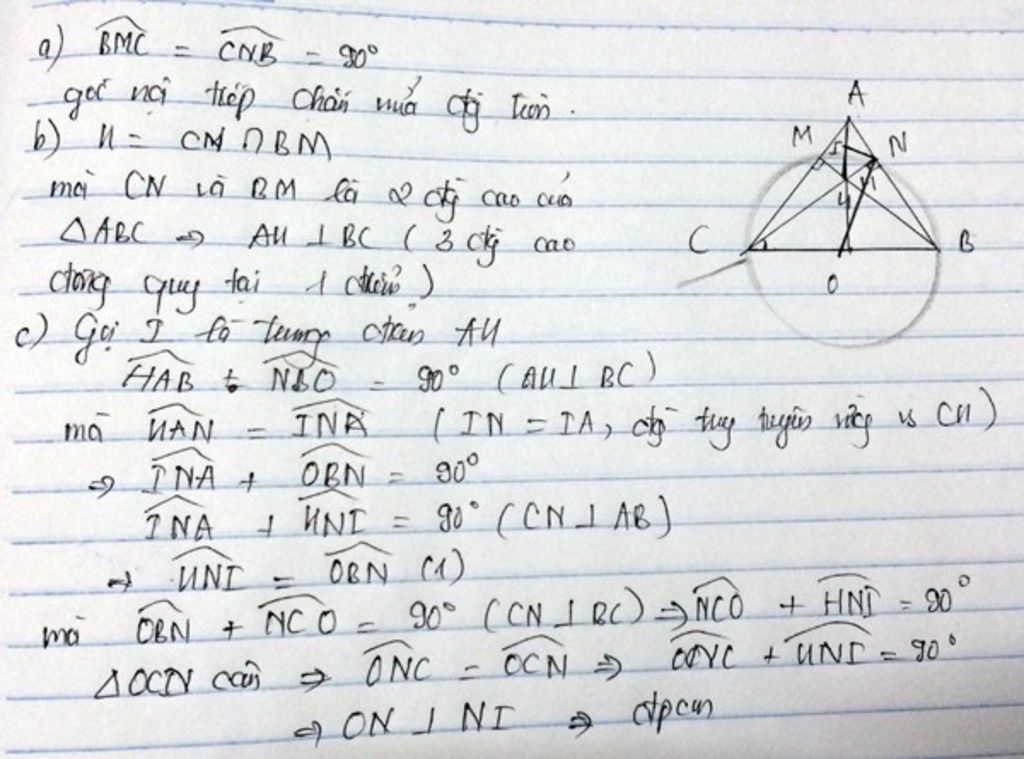 a) BMC = CNB = 90°
góc nội tiếp chắn nửa đg tròn.
b) H = CN ∩ BM
mà CN và BM là 2 đg cao của
ΔABC => AH ⊥ BC (3 đg cao
đồng quy tại 1 điểm)
c) Gọi I là trung điểm AH
HAB + NBO = 90° (AH ⊥ BC)
mà HAN = INA (IN = IA, đg trung tuyến ứng vs CH)
=> INA + OBN = 90°
INA + HNI = 90° (CN ⊥ AB)
=> HNI = OBN (1)
mà OBN + NCO = 90° (CN ⊥ BC) => NCO + HNI = 90°
ΔOCN cân => ONC = OCN => ONC + HNI = 90°
=> ON ⊥ NI => đpcm
A
M
I
N
H
C
B
O